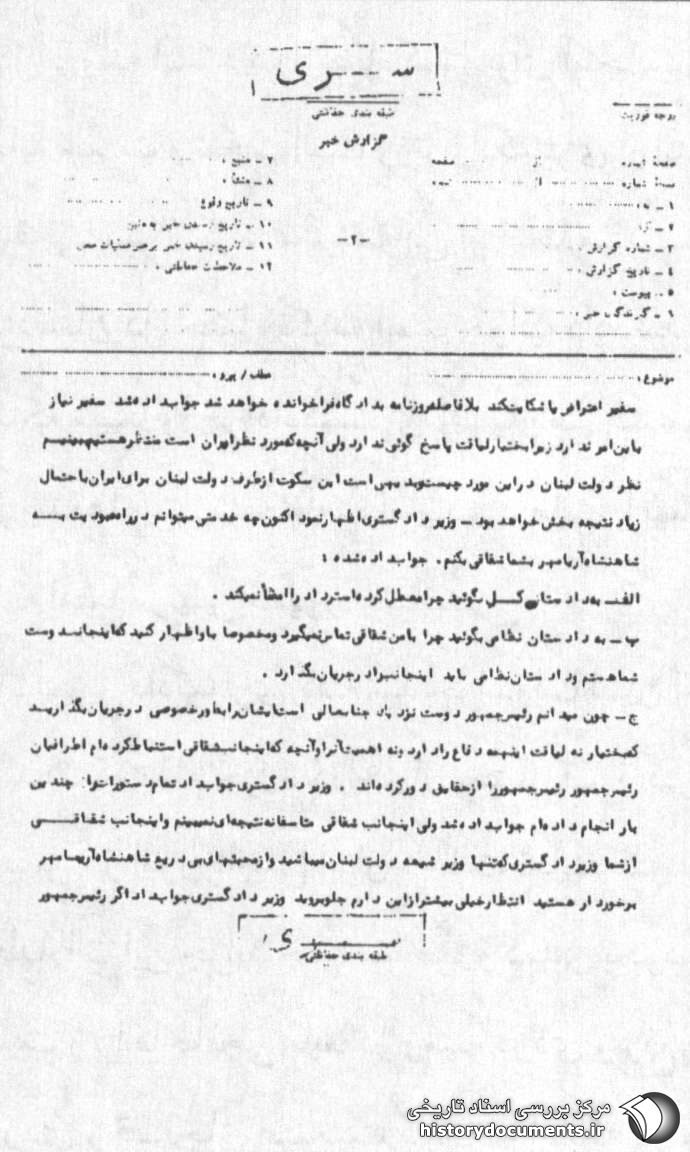 سری
طبقه بندی حفاظتی
درجه فوریت
گزارش خبر
صفحهٔ شماره ........ از ........ صفحه
نسخهٔ شماره ........ از ........ نسخه
۱ ـ به :
۲ ـ از :
۳ ـ شماره گزارش :
۴ ـ تاریخ گزارش :
۵ ـ پیوست :
۶ ـ گیرندگان خبر :
۷ ـ منبع :
۸ ـ منشأ :
۹ ـ تاریخ وقوع
۱۰ ـ تاریخ رسیدن خبر به منبع
۱۱ ـ تاریخ رسیدن خبر به رهبر عملیات محل
۱۲ ـ ملاحظات حفاظتی :
ـ۲ـ
موضوع :
عطف / پیرو :
سفیر اعتراض یا شکایت کند بلافاصله روزنامه به دادگاه فراخوانده خواهد شد جواب داده شد سفیر نیاز
باین امر ندارد زیرا بختیار لیاقت پاسخ گوئی ندارد ولی آنچه که مورد نظر ایران است منتظر هستیم ببینیم
نظر دولت لبنان در این مورد چیست و بدیهی است این سکوت از طرف دولت لبنان برای ایران با حتمال
زیاد نتیجه بخش خواهد بود ـ وزیر دادگستری اظهار نمود اکنون چه خدمتی میتوانم در راه عبودیت بـــه
شاهنشاه آریامهر بشما شقاقی بکنم . جواب داده شد :
الف ـ به دادستان کــل بگوئید چرا معطل کرده استرداد را امضاً نمیکند .
ب ـ به دادستان نظامی بگوئید چرا با من شقاقی تماس نمیگیرد و مخصوصا باو اظهار کنید که اینجانب دوست
شما هستم و دادستان نظامی باید اینجانب را در جریان بگذارد .
ج ـ چون میدانم رئیس جمهور دوست نزدیک جنابعالی است ایشان را بطور خصوصی در جریان بگذاریــد
که بختیار نه لیاقت اینهمه دفاع را دارد و نه اهمیت آنرا و آنچه که اینجانب شقاقی استنباط کرده ام اطرافیان
رئیس جمهور رئیس جمهور را از حقایق دور کرده اند . وزیر دادگستری جواب داد تمام دستورات را چندین
بار انجام داده ام جواب داده شد ولی اینجانب شقاقی متاسفانه نتیجه ای نمیبینم و اینجانب شقاقــی
از شما وزیر دادگستری که تنها وزیر شیعه دولت لبنان میباشید و از محبتهای بی دریغ شاهنشاه آریامهر
برخوردار هستید انتظار خیلی بیشتر از این دارم جلو بروید وزیر دادگستری جواب داد اگر رئیس جمهور
سری
طبقه بندی حفاظتی
مرکز بررسی اسناد تاریخی
historydocuments.ir